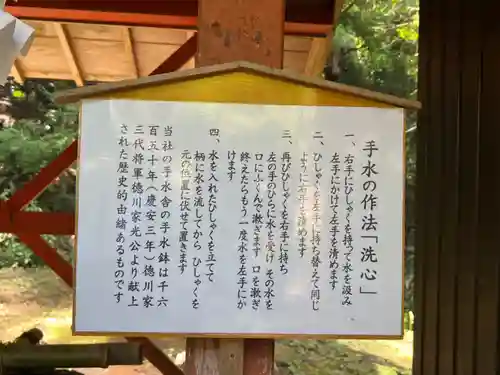 手水の作法「洗心」
一、右手にひしゃくを持って水を汲み
左手にかけて左手を清めます
二、ひしゃくを左手に持ち替えて同じ
ように右手を清めます
三、再びひしゃくを右手に持ち
左の手のひらに水を受け その水を
口にふくんで漱ぎます 口を漱ぎ
終えたらもう一度水を左手にか
けます
四、水を入れたひしゃくを立てて
柄に水を流してから ひしゃくを
元の位置に伏せて置きます
当社の手水舎の手水鉢は千六
百五十年(慶安三年)徳川家
三代将軍徳川家光公より献上
された歴史的由緒あるものです